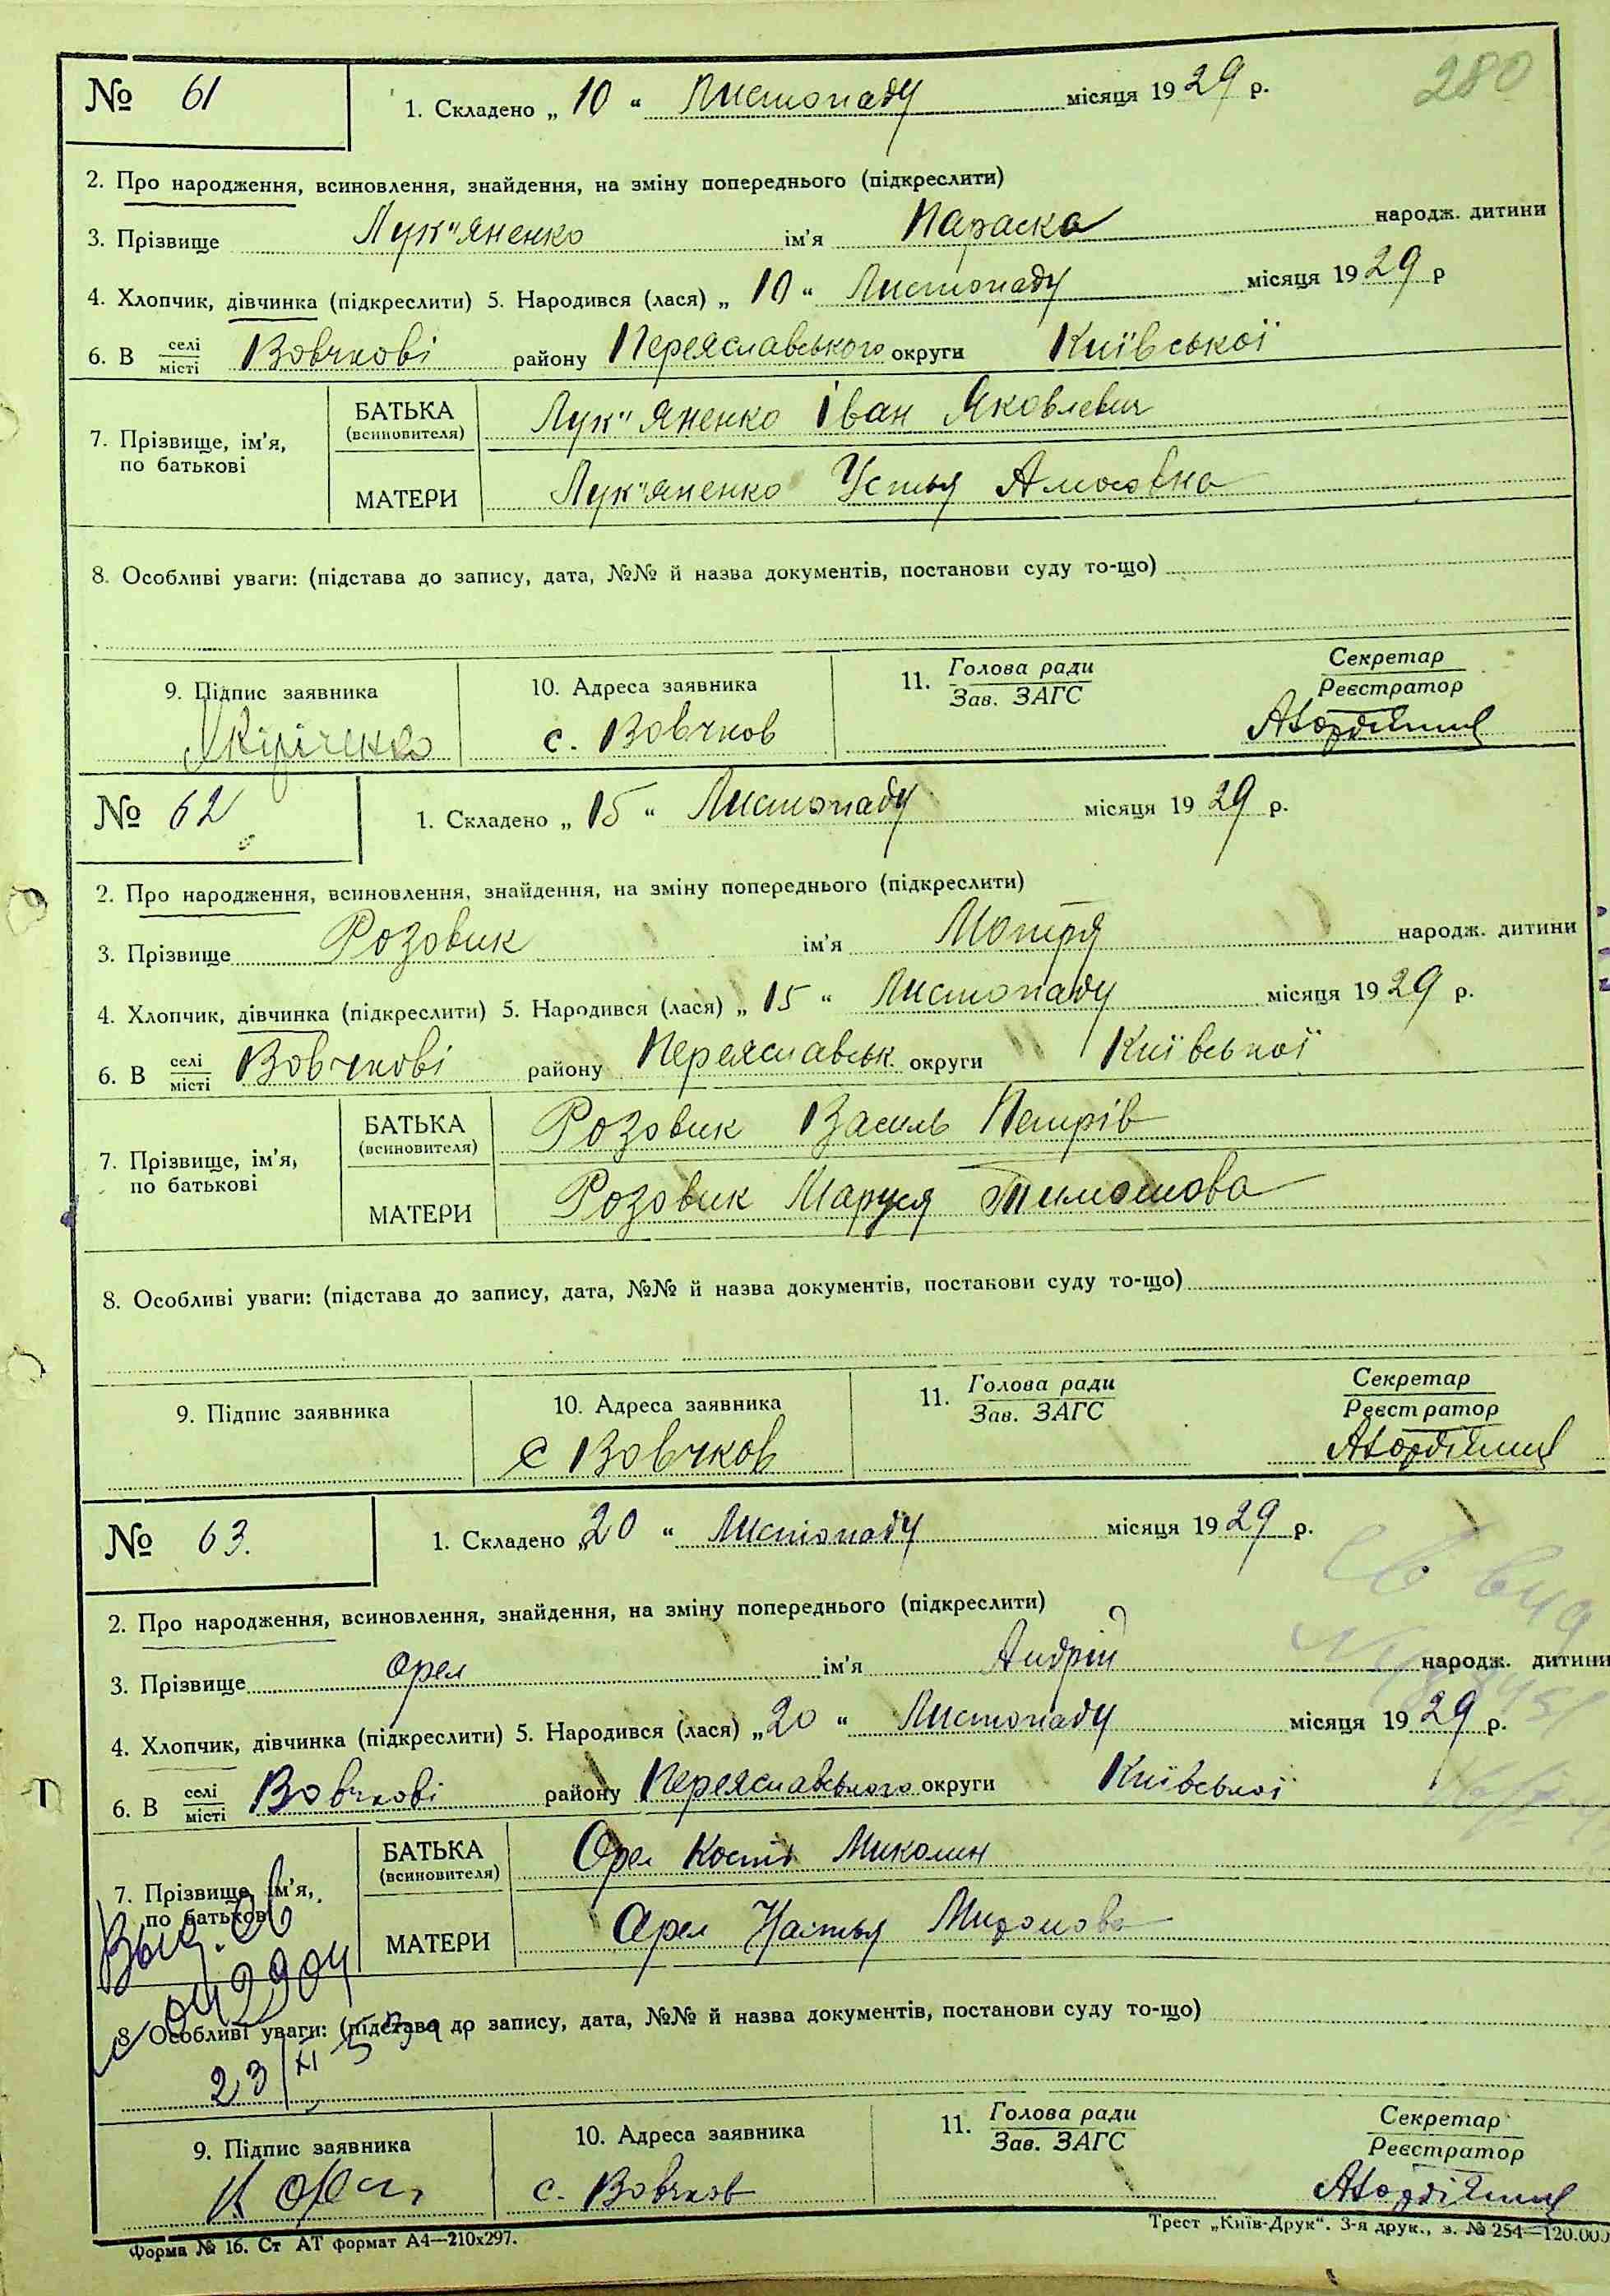 280
№ 61
1. Складено „ 10 “ Листопаду місяця 1929 р.
2. Про народження, всиновлення, знайдення, на зміну попереднього (підкреслити)
3. Прізвище Лук"яненко ім’я Параска народж. дитини
4. Хлопчик, дівчинка (підкреслити) 5. Народився (лася) „ 10 “ Листопаду місяця 1929 р
6. В селі місті Вовчкові району Переяславського округи Київської
7. Прізвище, ім’я, по батькові
БАТЬКА (всиновителя) Лук"яненко Іван Яковлевич
МАТЕРИ Лук"яненко Устья Амосовна
8. Особливі уваги: (підстава до запису, дата, №№ й назва документів, постанови суду то-що)
9. Підпис заявника
10. Адреса заявника
11. Голова ради Зав. ЗАГС
Секретар Реєстратор
с. Вовчков
№ 62
1. Складено „ 15 “ Листопаду місяця 1929 р.
2. Про народження, всиновлення, знайдення, на зміну попереднього (підкреслити)
3. Прізвище Розовик ім’я Мотря народж. дитини
4. Хлопчик, дівчинка (підкреслити) 5. Народився (лася) „ 15 “ Листопаду місяця 1929 р.
6. В селі місті Вовчкові району Переяславськ. округи Київської
7. Прізвище, ім’я, по батькові
БАТЬКА (всиновителя) Розовик Василь Петрів
МАТЕРИ Розовик Маруся Тимошова
8. Особливі уваги: (підстава до запису, дата, №№ й назва документів, постанови суду то-що)
9. Підпис заявника
10. Адреса заявника
11. Голова ради Зав. ЗАГС
Секретар Реєстратор
с Вовчков
№ 63.
1. Складено „20 “ Листопаду місяця 1929 р.
2. Про народження, всиновлення, знайдення, на зміну попереднього (підкреслити)
3. Прізвище Орел ім’я Андрій народж. дитини
4. Хлопчик, дівчинка (підкреслити) 5. Народився (лася) „20 “ Листопаду місяця 1929 р.
6. В селі місті Вовчкові району Переяславського округи Київської
7. Прізвище, ім’я, по батькові
БАТЬКА (всиновителя) Орел Костя Миколин
МАТЕРИ Орел Настья Миронова
8. Особливі уваги: (підстава до запису, дата, №№ й назва документів, постанови суду то-що)
23/XI
9. Підпис заявника
10. Адреса заявника
11. Голова ради Зав. ЗАГС
Секретар Реєстратор
К Орел
с. Вовчков
Форма № 16. Ст АТ формат А4—210х297.
Трест „Київ-Друк“. 3-я друк., з. № 254—120.000